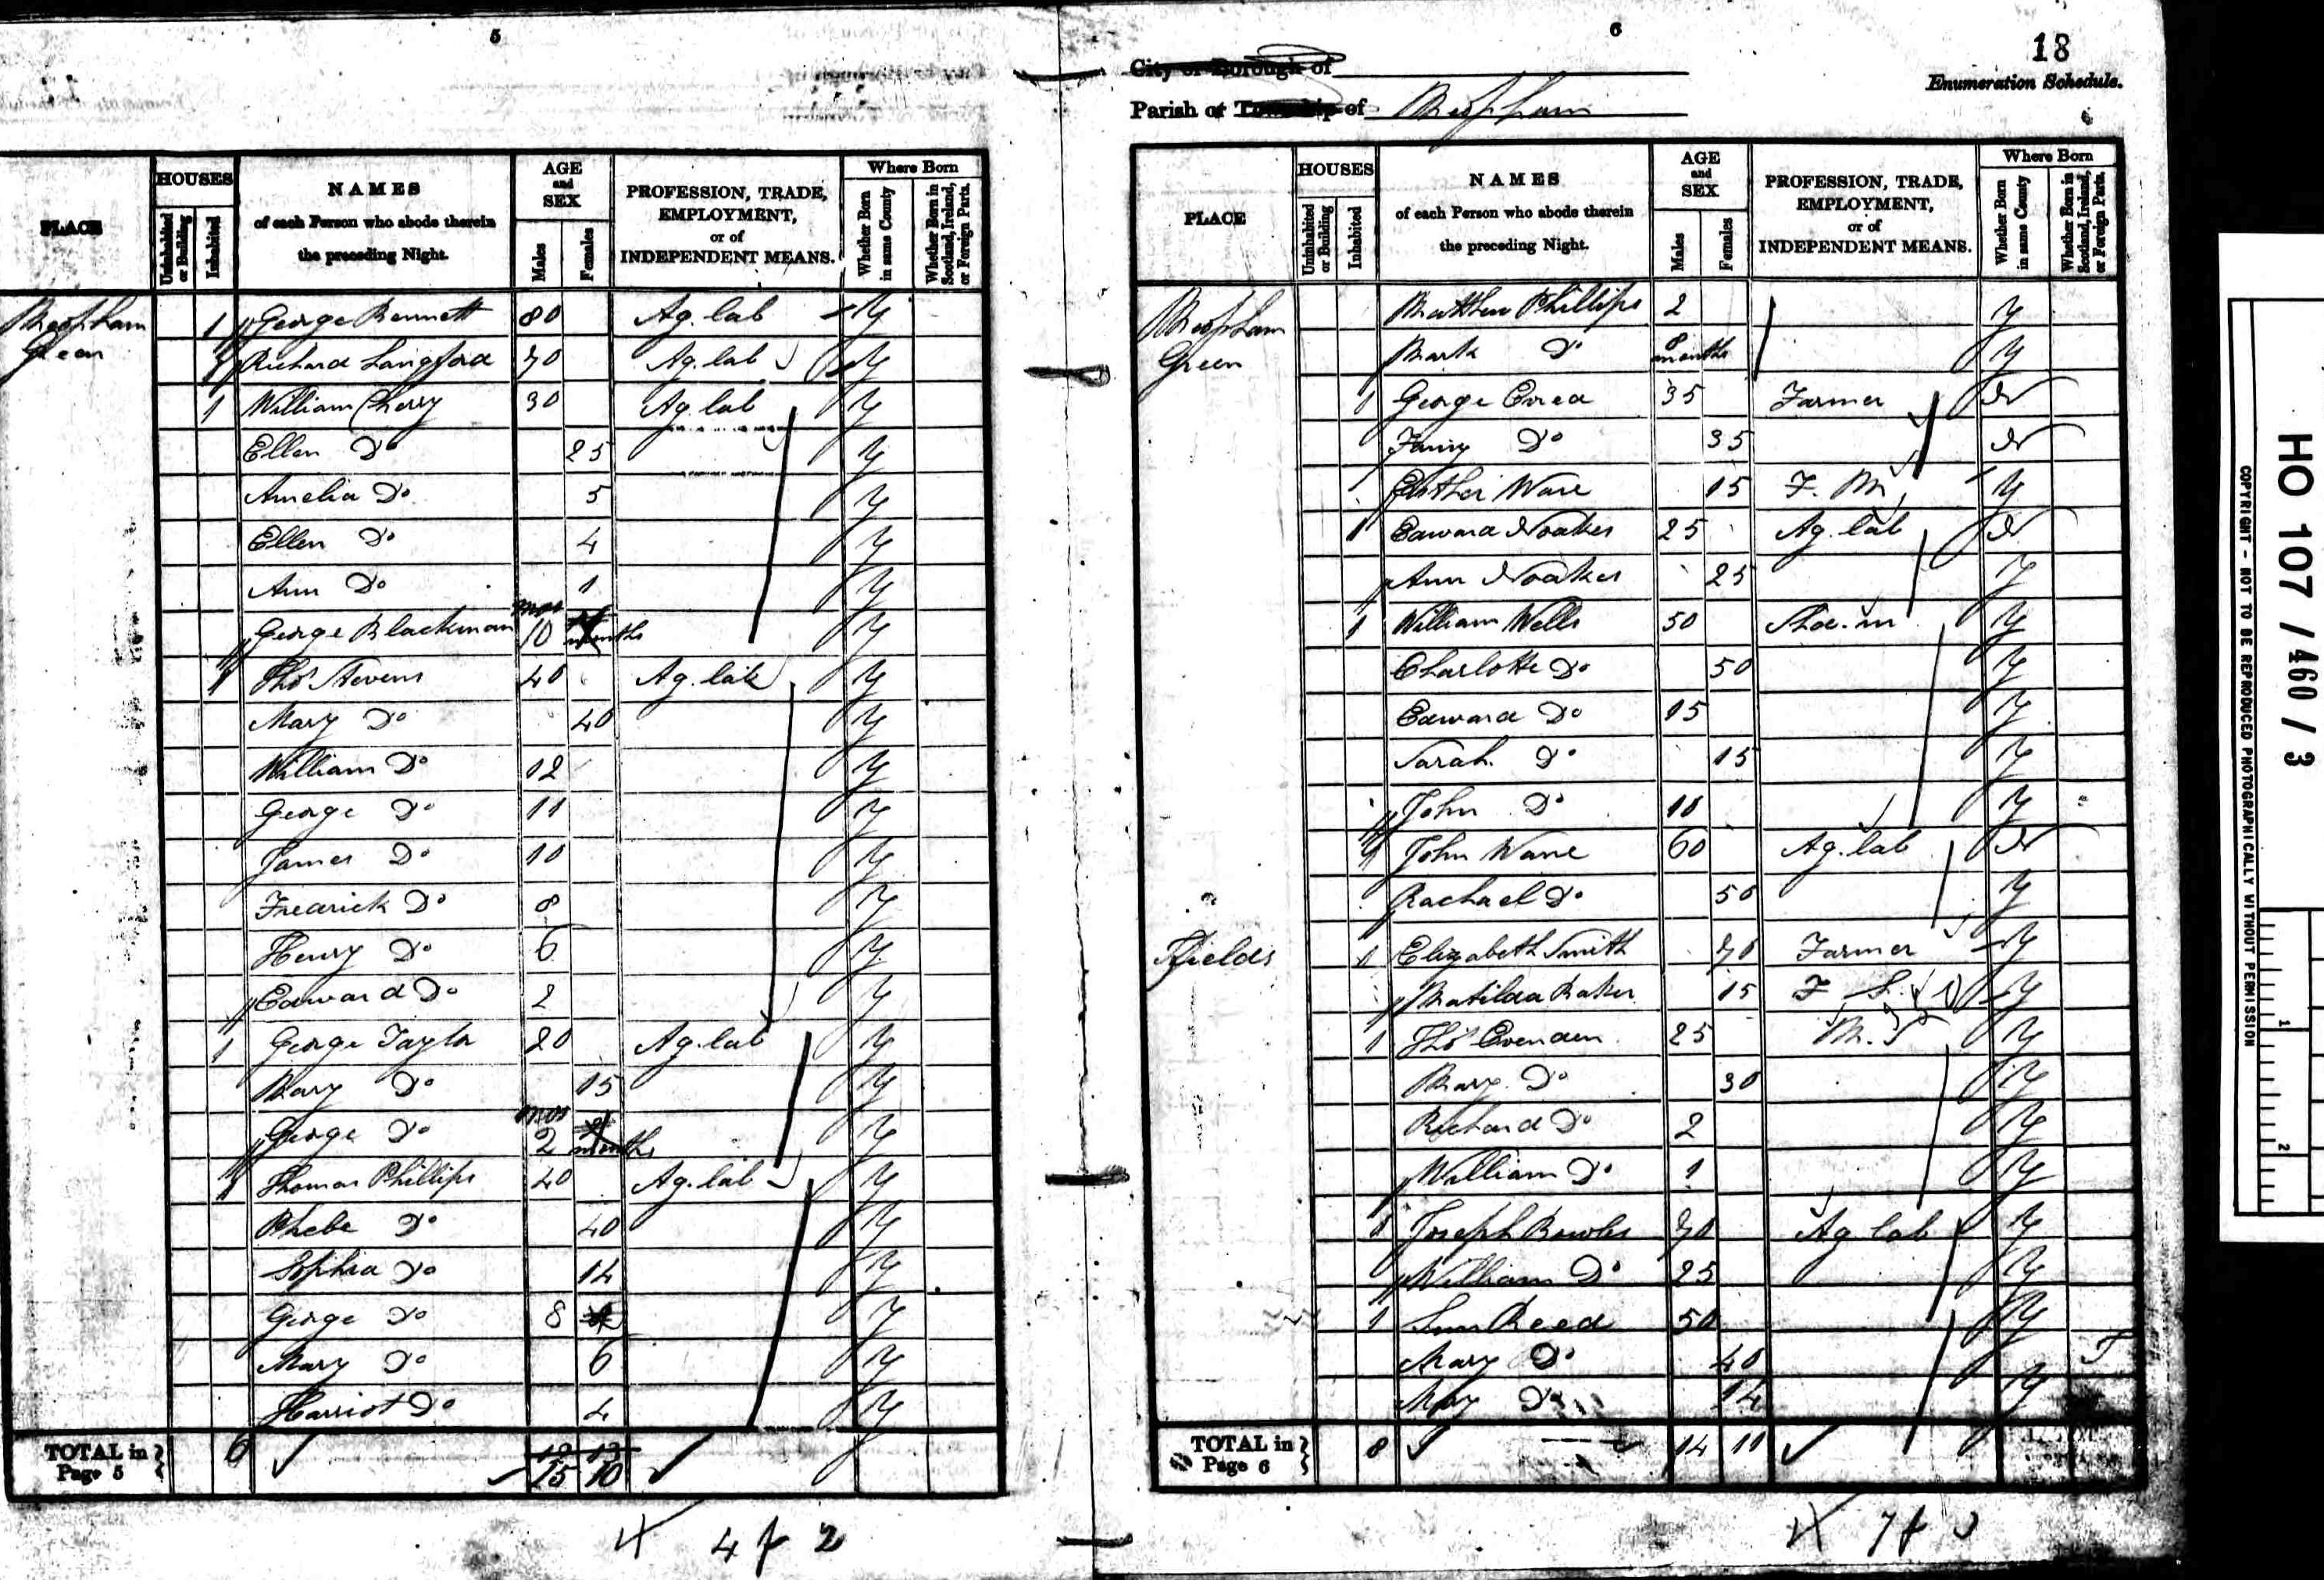 5
PLACE
HOUSES
Uninhabited or Building
Inhabited
NAMES
of each Person who abode therein
the preceding Night.
AGE
and
SEX
Males
Females
PROFESSION, TRADE,
EMPLOYMENT,
or of
INDEPENDENT MEANS.
Where Born
Whether Born in same County
Whether Born in Scotland, Ireland, or Foreign Parts.
Meopham 1 George Bennett 80 Ag. lab Y
Green Richard Langford 70 Ag. lab Y
1 William Cherry 30 Ag. lab Y
Ellen Do 25 Y
Amelia Do 5 Y
Ellen Do 4 Y
Ann Do 1 Y
George Blackman mos 10 months Y
1 Thos Stevens 40 Ag. lab Y
Mary Do 40 Y
William Do 12 Y
George Do 11 Y
James Do 10 Y
Fredrick Do 8 Y
Henry Do 6 Y
Edward Do 2 Y
1 George Taylor 20 Ag. lab Y
Mary Do 15 Y
George Do mos 2 months Y
1 Thomas Phillips 40 Ag. lab Y
Phebe Do 40 Y
Sophia Do 14 Y
George Do 8 Y
Mary Do 6 Y
Harriot Do 4 Y
TOTAL in Page 5 6 15 10
4 f 2
6
18
City or Borough of
Enumeration Schedule.
Parish or Township of Meopham
PLACE
HOUSES
Uninhabited or Building
Inhabited
NAMES
of each Person who abode therein
the preceding Night.
AGE
and
SEX
Males
Females
PROFESSION, TRADE,
EMPLOYMENT,
or of
INDEPENDENT MEANS.
Where Born
Whether Born in same County
Whether Born in Scotland, Ireland, or Foreign Parts.
Meopham Matthew Phillips 2 Y
Green Mark Do 8 months Y
1 George 35 Farmer N
Fanny Do 35 N
Esther Ware 15 F. M Y
1 Edward Noakes 25 Ag. lab N
Ann Noakes 25 Y
1 William Wells 50 Shoe. m Y
Charlotte Do 50 Y
Edward Do 15 Y
Sarah Do 15 Y
John Do 10 Y
1 John Ware 60 Ag. lab N
Rachael Do 50 Y
Fields 1 Elizabeth Smith 70 Farmer Y
Matilda Baker 15 F. S. Y
1 Thos Evenden 25 M. S Y
Mary Do 30 Y
Richard Do 2 Y
William Do 1 Y
1 Joseph Bowles 70 Ag lab Y
William Do 25 Y
1 Reed 50 Y
Mary Do 40
Mary Do 14 Y
TOTAL in Page 6 8 14 11
HO 107 / 460 / 3
COPYRIGHT - NOT TO BE REPRODUCED PHOTOGRAPHICALLY WITHOUT PERMISSION
1
2